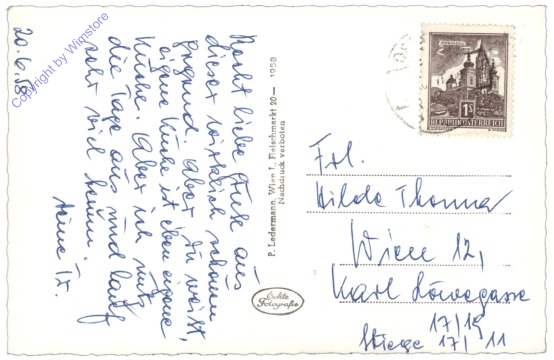 20.6.58
Recht liebe Grüße aus
dieser wirklich schönen
Gegend. Aber Du weißt,
eigene Küche ist eben eigene
Küche. Aber ich nütz
die Tage aus und lauf
sehr viel herum.
Deine Tr.
P. Ledermann, Wien I., Fleischmarkt 20 — 1958
Nachdruck verboten
Echte
Fotografie
MARIAZELL
1S
REPUBLIK ÖSTERREICH
Frl.
Hilde Thonna
Wien 12,
Karl Löwegasse
17/19
Stiege 17/11
Copyright by Wimstore